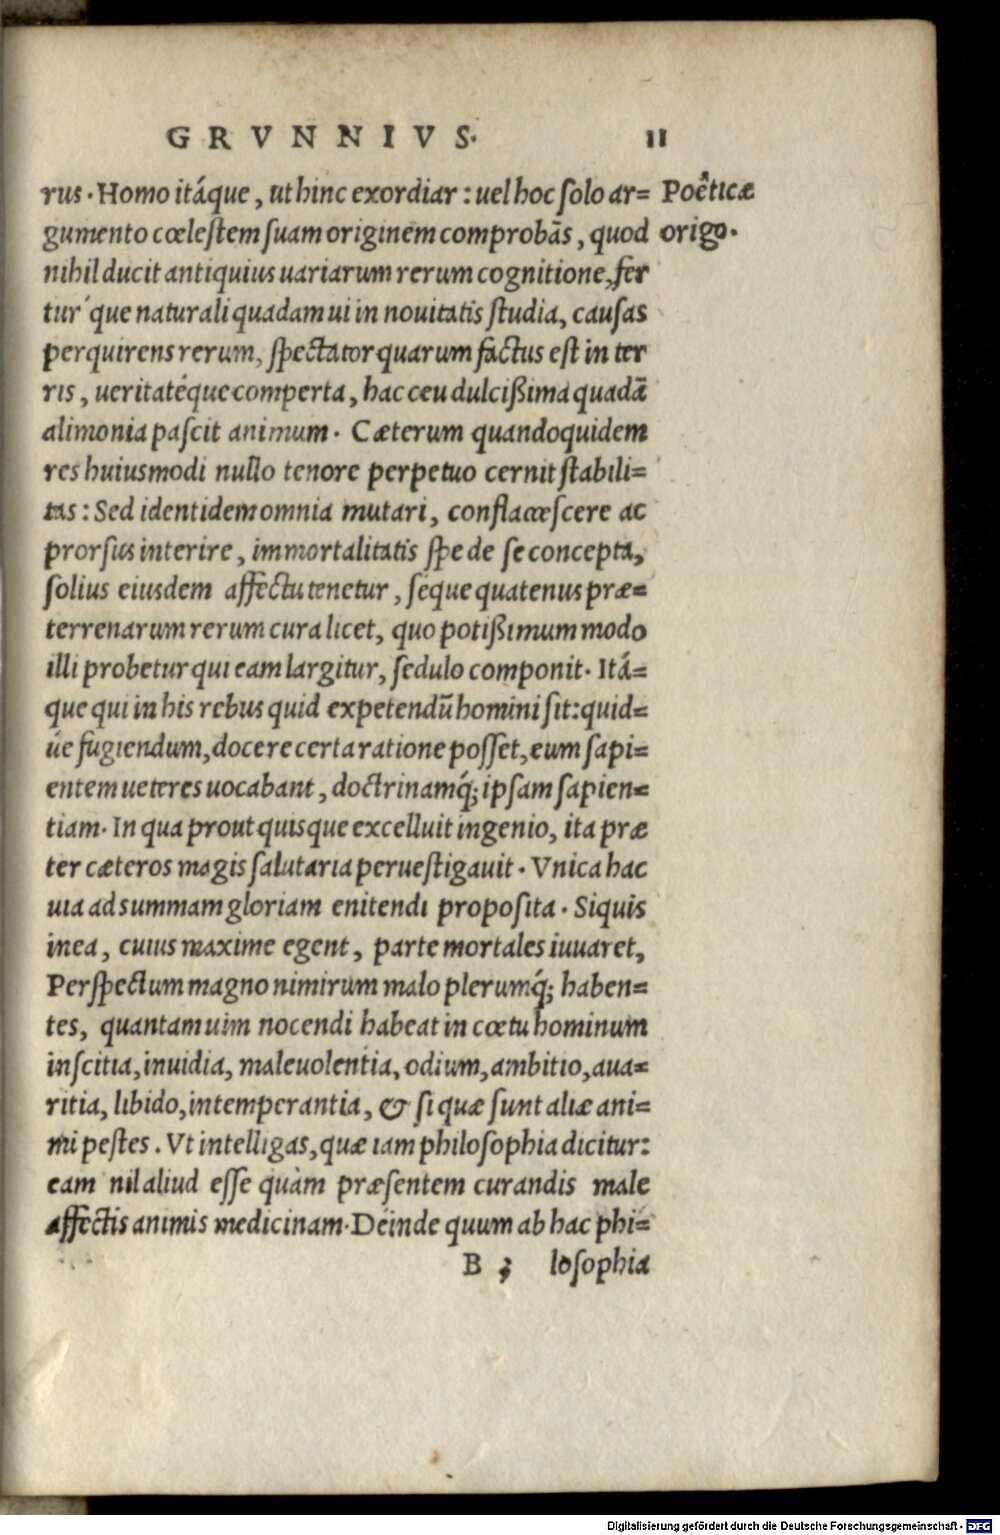 GRVNNIVS. 11
rus. Homo itáque, ut hinc exordiar: uel hoc solo ar= Poêticæ
gumento cœlestem suam originem comprobãs, quod origo.
nihil ducit antiquius uariarum rerum cognitione, fer
tur´que naturali quadam ui in nouitatis studia, causas
perquirens rerum, spectator quarum factus est in ter
ris, ueritatéque comperta, hac ceu dulcißima quadã
alimonia pascit animum. Cæterum quandoquidem
res huiusmodi nullo tenore perpetuo cernit stabili=
tas: Sed identidem omnia mutari, conflaccescere ac
prorsus interire, immortalitatis spe de se concepta,
solius eiusdem affectu tenetur, séque quatenus præ=
terrenarum rerum cura licet, quo potißimum modo
illi probetur qui eam largitur, sedulo componit. Itá=
que qui in his rebus quid expetendũ homini sit: quid=
úe fugiendum, docere certa ratione posset, eum sapi=
entem ueteres uocabant, doctrinamq́; ipsam sapien=
tiam. In qua prout quisque excelluit ingenio, ita præ
ter cæteros magis salutaria peruestigauit. Vnica hac
uia ad summam gloriam enitendi proposita. Siquis
in ea, cuius maxime egent, parte mortales iuuaret,
Perspectum magno nimirum malo plerumq́; haben=
tes, quantam uim nocendi habeat in cœtu hominum
inscitia, inuidia, maleuolentia, odium, ambitio, aua=
ritia, libido, intemperantia, & si quæ sunt aliæ ani=
mi pestes. Vt intelligas, quæ iam philosophia dicitur:
eam nil aliud esse quàm præsentem curandis male
affectis animis medicinam. Déinde quum ab hac phi=
B 3 losophia
Digitalisierung gefördert durch die Deutsche Forschungsgemeinschaft - DFG